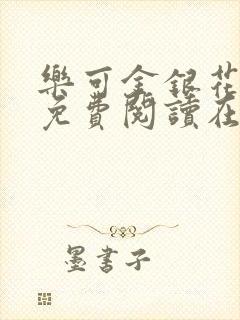 樂可金銀花
免費閱讀在
墨書子